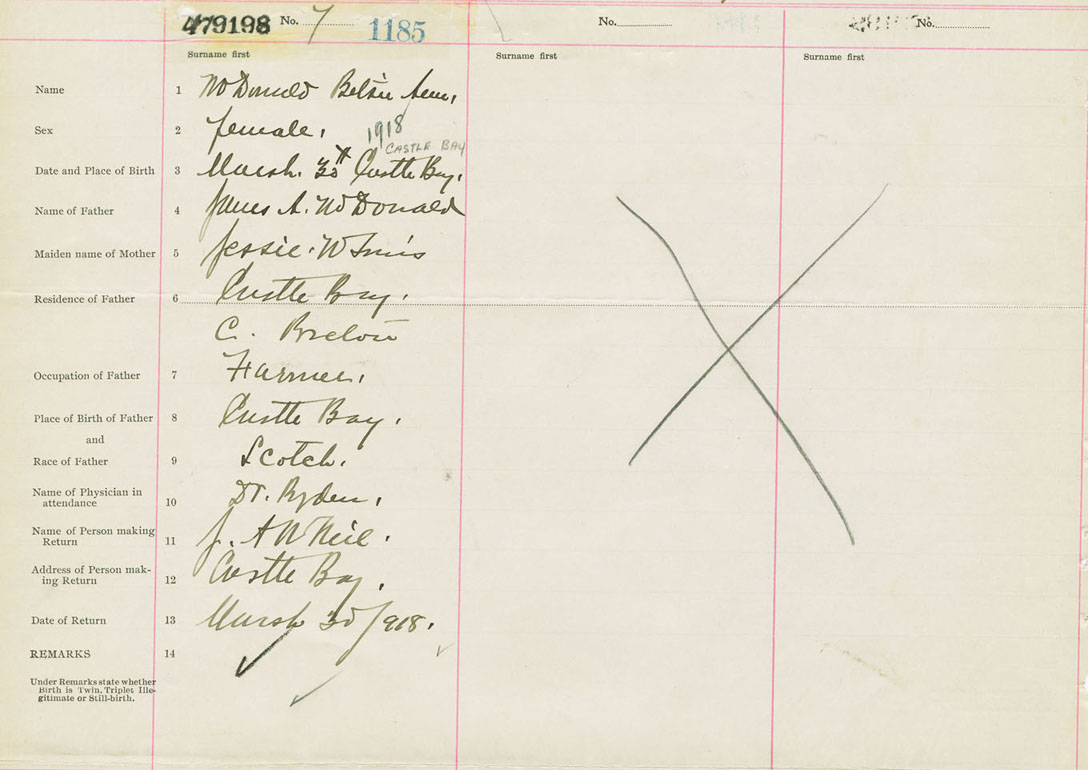 479198 No. 7 1185 No. No.
Surname first Surname first Surname first
Name 1 McDonald Betsie Ann,
Sex 2 female, 1918
CASTLE BAY
Date and Place of Birth 3 March. 30th Castle Bay.
Name of Father 4 James A. McDonald
Maiden name of Mother 5 Jessie.
Residence of Father 6 Castle Bay.
C. Breton
Occupation of Father 7 Farmer,
Place of Birth of Father 8 Castle Bay.
and
Race of Father 9 Scotch.
Name of Physician in
attendance 10 Dr.
Name of Person making
Return 11 J. A McNeil.
Address of Person mak-
ing Return 12 Castle Bay,
Date of Return 13 March 30/918.
REMARKS 14
Under Remarks state whether
Birth is Twin, Triplet Ille-
gitimate or Still-birth.